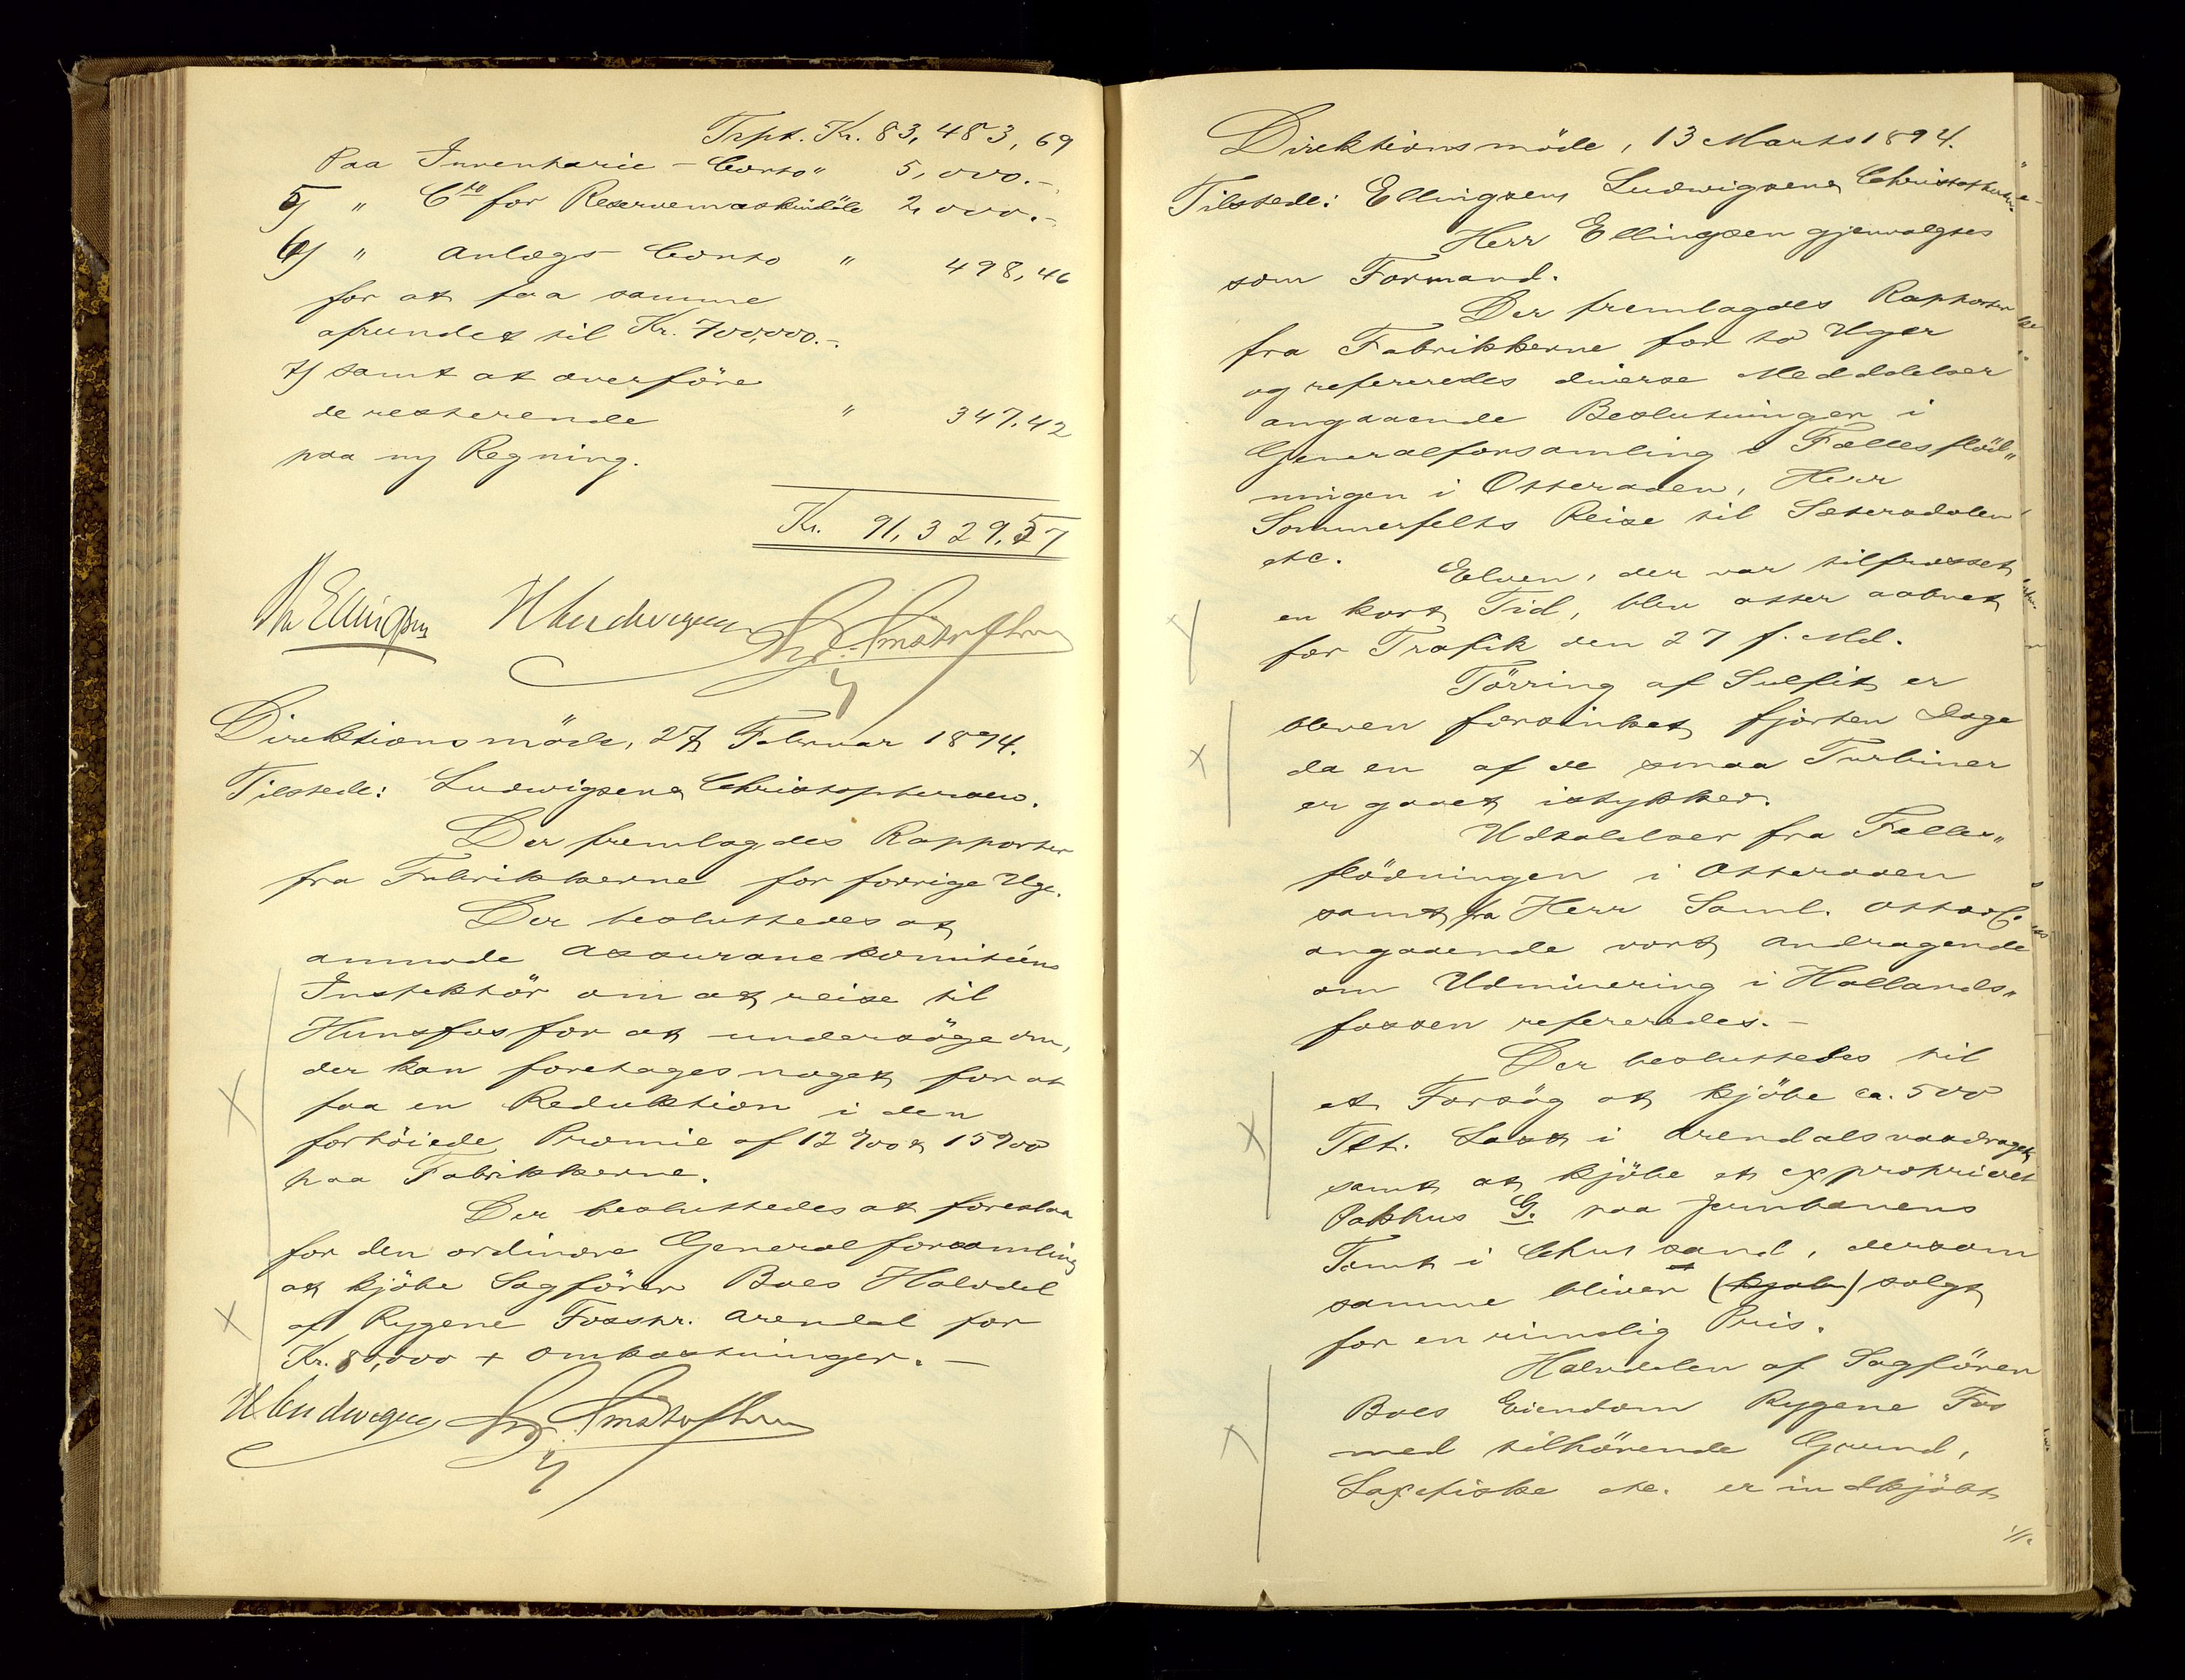 Trpt. Kr. 83,483,69
Paa Inventarie-Conto " 5,000.-
5) " Cto for Reservemaskindele 2,000.-
6) " Anlægs-Conto " 498,46
for at faa samme
afrundet til Kr. 700,000.-
7) samt at overføre
de resterende " 347.42
paa ny Regning.
Kr. 91,329.57
Th Ellingsen H Ludwigsen Chr. Christophersen
Direktionsmöde, 27 Februar 1894.
Tilstede: Ludwigsen & Christophersen.
Der fremlagdes Rapporter
fra Fabrikkerne for forrige Uge.
Der besluttedes at
anmode Assurancekomitéens
Inspektör om at reise til
Hunsfos for at undersöge om,
der kan foretages noget for at
faa en Reduktion i den
forhöiede Præmie af 12 ‰ & 15 ‰
paa Fabrikkerne.
Der besluttedes at foreslaa
for den ordinære Generalforsamling
at kjöbe Sagförer Boes Halvdel
af Rygene Fosspr. Arendal for
Kr. 80,000 + Omkostninger. —
H Ludwigsen Chr. Christophersen
Direktionsmöde, 13 Marts 1894.
Tilstede: Ellingsen, Ludwigsen & Christophersen.
Herr Ellingsen gjenvalgtes
som Formand.
Der fremlagdes Rapporter
fra Fabrikkerne for to Uger
og refereredes diverse Meddelelser
angaaende Beslutningen i
Generalforsamling i Fællesflöd„
ningen i Otteraaen, Herr
Sommerfelts Reise til Sætersdalen
etc.
Elven, der var tilfrosset
en kort Tid, blev atter aabnet
for Trafik den 27 f. Md.
Törring af Sulfit er
bleven forsinket fjorten Dage
da en af de smaa Turbiner
er gaaet istykker.
Udtalelser fra Fælles„
flödningen i Otteraaen
samt fra Herr Saml. Otto
angaaende vort Andragende
om Udminering i Hallands„
fossen refereredes. —
Der besluttedes til
et Forsög at kjöbe ca. 500
Tlt. Last i Arendalsvasdraget
samt at kjöbe et exproprieret
Pakhus G. paa Jernbanens
Tomt i Chrsand, dersom
samme bliver (kjøbe) solgt
for en rimelig Pris.
Halvdelen af Sagförer
Boes Eiendom Rygene Fos
med tilhörende Grund,
Laxefiske etc. er indkjöbt